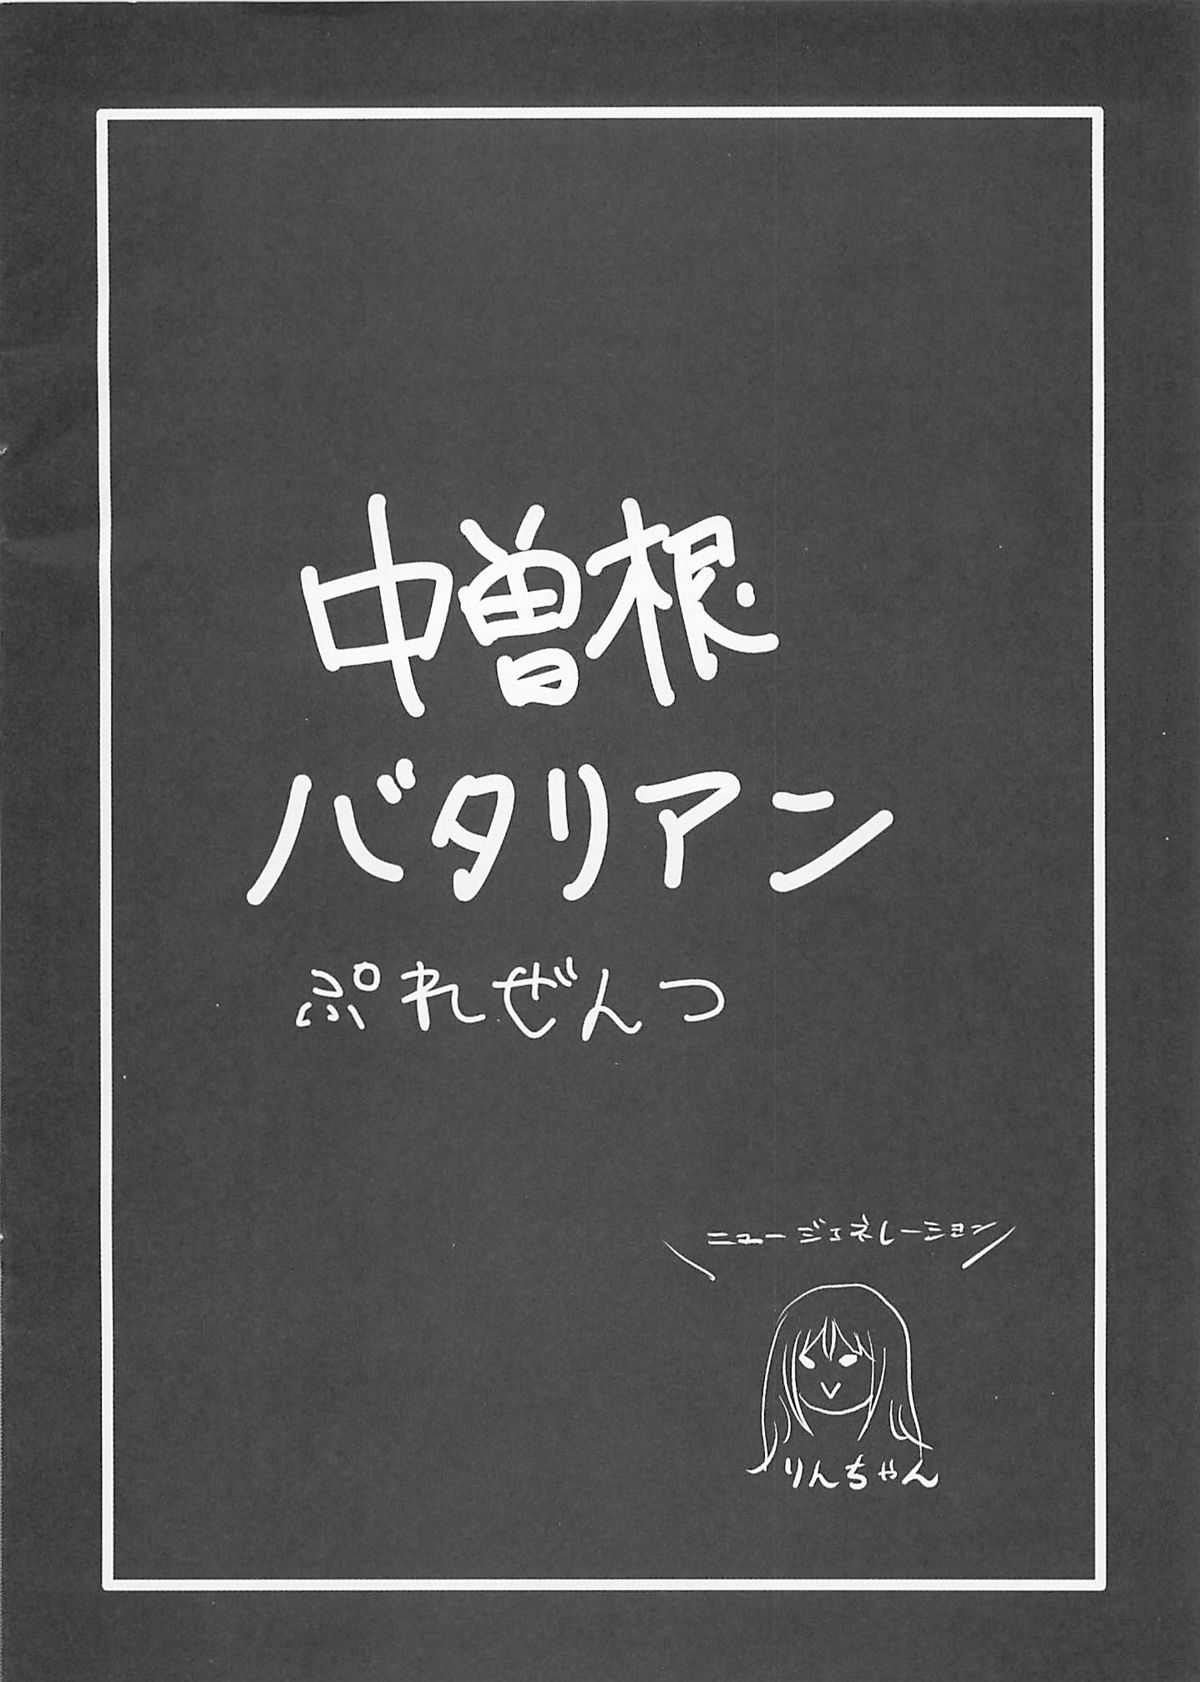 中曽根
バタリアン
ぷれぜんつ
ニュージェネレーション
りんちゃん